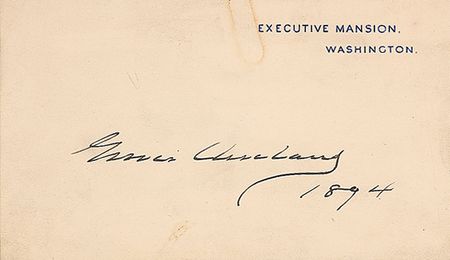 EXECUTIVE MANSION.
WASHINGTON.
Grover Cleveland
1894